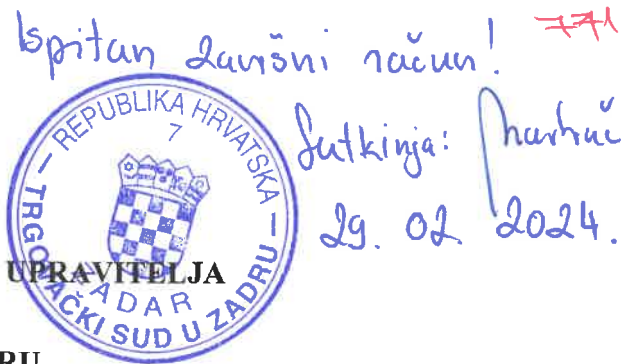 771
Ispitan završni račun!
Sutkinja:
29. 02. 2024.
REPUBLIKA HRVATSKA
7
TRGOVAČKI SUD U ZADRU
ZADAR
UPRAVITELJA
RU